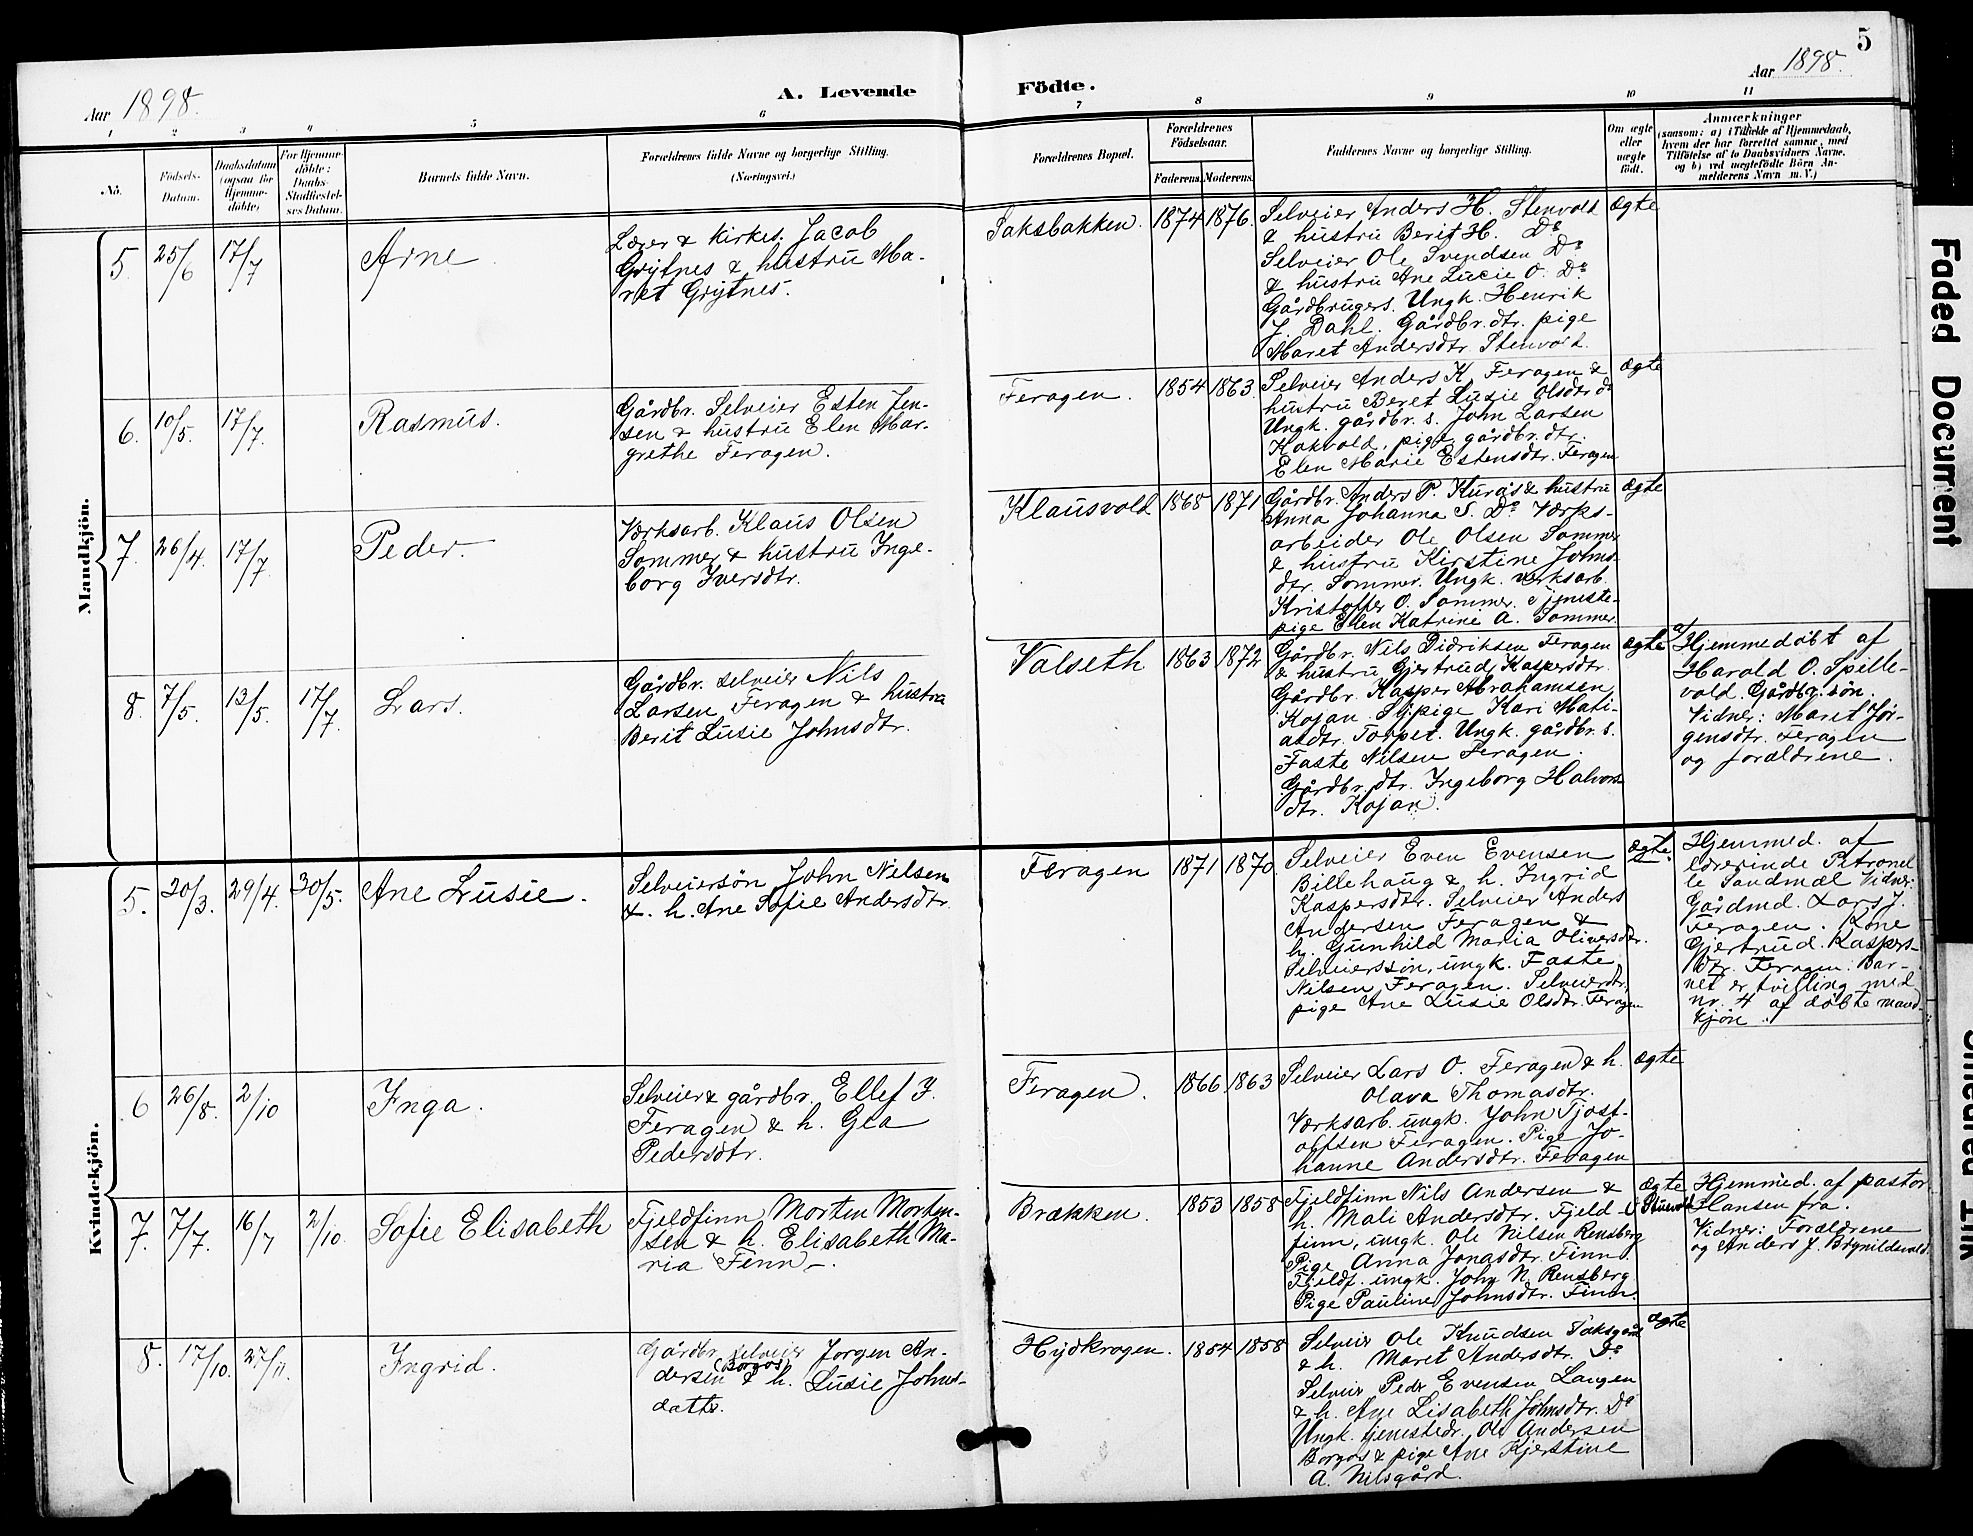 5
Aar 1898.
A. Levende
Födte.
Aar 1898.
1
2
3
4
5
6
7
8
9
10
11
No.
Födsels-
Datum.
Daabsdatum
(ogsaa for
Hjemme-
döbte)
For Hjemme-
döbte:
Daabs-
Stadfæstel-
ses Datum.
Barnets fulde Navn.
Forældrenes fulde Navne og borgerlige Stilling.
(Næringsvei.)
Forældrenes Bopæl.
Forældrenes
Födselsaar.
Faderens.
Moderens.
Faddernes Navne og borgerlige Stilling.
Om ægte
eller
uægte
født.
Anmærkninger
(saasom: a) i Tilfælde af Hjemmedaab,
hvem der har forrettet samme, med
Tilföielse af to Daabsvidners Navne,
og b) ved uægtefödte Börn An-
melderens Navn m. V.)
Mandkjön.
5.
25/6
17/7
Arne
Lærer & kirkes. Jacob
Grytnes & hustru Ma-
ret Grytnes.
Saksbakken.
1874
1876.
Selveier Anders H. Stenvold
& hustru Berit H. Do
Selveier Ole Svendsen Do
& hustru Ane Lucie O. Do
Gårdbrugers. Ungk. Henrik
J. Dahl. Gårdbr. dtr. pige
Maret Andersdtr Stenvold.
ægte
6.
10/5.
17/7.
Rasmus.
Gårdbr. Selveier Esten Jen-
sen & hustru Elen Mar-
grethe Feragen.
Feragen.
1854
1863.
Selveier Anders K. Feragen &
hustru Beret Lusie Olsdtr do
Ungk. gårdbr. s. John Larsen
Kokvold, pige gårdbr. dtr.
Elen Marie Estensdtr. Feragen
ægte
7.
26/4.
17/7.
Peder.
Værksarb. Klaus Olsen
Sommer & hustru Inge-
borg Iversdtr.
Klausvold
1868
1871
Gårdbr. Anders P. Kurås & hustru
Anna Johanna S. Do Værks-
arbeider Ole Olsen Sommer
& hustru Kirstine Johns-
dtr. Sommer. Ungk. værksarb.
Kristoffer O. Sommer. Tjeneste-
pige Elen Katrine A. Sommer
ægte
8.
7/5.
13/5.
17/7.
Lars.
Gårdbr. selveier Nils
Larsen Feragen & hustru
Berit Lusie Johnsdtr.
Valseth
1863
1872
Gårdbr. Nils Didriksen Feragen
& hustru Gjertrud Kaspersdtr.
Gårdbr. Kasper Abrahamsen
Kojan. Sypige Kari Mati-
asdtr. Torpet. Ungk. gårdbr. s.
Faste Nilsen Feragen.
Gårdbr. dtr. Ingeborg Halvors-
dtr. Kojan.
ægte
a/ Hjemmedøbt af
Harald O. Spille-
vold. Gårdbr. søn.
Vidner: Maret Jør-
gensdtr. Feragen
og forældrene.
Kvindekjön.
5.
20/3.
29/4.
30/5.
Ane Lusie.
Selveiersøn John Nilsen
&. h. Ane Sofie Andersdtr.
Feragen
1871
1870.
Selveier Even Evensen
Billehaug & h. Ingrid
Kaspersdtr. Selveier Anders
Andersen Feragen &
h. Gunhild Maria Oliversdtr.
Selveiersøn, ungk. Faste
Nilsen Feragen. Selveierdtr.
pige Ane Lusie Olsdtr. Feragen
ægte.
Hjemmed. af
lærerinde Petronel
le Sandmæl Vidner:
Gårdmd. Lars J.
Feragen. Kone
Gjertrud Kaspers-
dtr. Feragen. Bar-
net er tvilling med
nr. 4 af døbte mand-
kjøn.
6
26/8.
2/10
Inga.
Selveier & gårdbr. Ellef J.
Feragen & h. Gea
Pedersdtr.
Feragen.
1866
1863
Selveier Lars O. Feragen & h.
Olava Thomasdtr.
Værksarb. ungk. John Tjost-
olfsen Feragen. Pige Jo-
hanne Andersdtr. Feragen
ægte
7.
7/7.
16/7
2/10.
Sofie Elisabeth
Fjeldfinn Morten Morten-
sen & h. Elisabeth Ma-
ria Finn.
Brækken.
1853
1858
Fjeldfinn Nils Andersen &
h. Mali Andersdtr. Fjeld-
finn, ungk. Ole Nilsen Rensberg
Pige Anna Jonasdtr. Finn.
Fjeldf. ungk. John N. Rensberg
Pige Pauline Johnsdtr. Finn.
ægte
Hjemmed. af pastor
Hansen fra.
Vidner: Forældrene
og Anders J. Brynildsvold.
8.
17/10.
27/11.
Ingrid.
Gårdbr. selveier Jørgen An-
dersen (Borgos) & h. Lusie Johns-
datter.
Hydkrogen.
1854
1858
Selveier Ole Knudsen Saksgård
& h. Maret Andersdtr. Do
Selveier Peder Evensen Langen
& h. Ane Lisabeth Johnsdtr. Do
Ungk. tjenestedr. Ole Andersen
Borgos & pige Ane Kjerstine
A. Nilsgård.
ægte
Faded Document